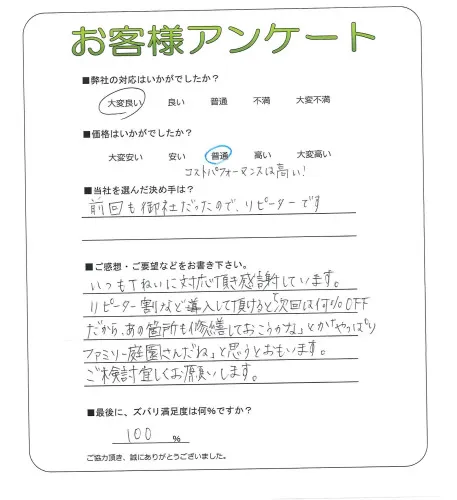 お客様アンケート
■弊社の対応はいかがでしたか？
大変良い 良い 普通 不満 大変不満
■価格はいかがでしたか？
大変安い 安い 普通 高い 大変高い
コストパフォーマンスは高い!
■当社を選んだ決め手は？
前回も御社だったので、リピーターです
■ご感想・ご要望などをお書き下さい。
いつもていねいに対応頂き感謝しています。
リピーター割など導入して頂けると「次回は何%OFF
だから、あの箇所も修繕しておこうかな」とか「やっぱり
ファミリー庭園さんだね」と思うとおもいます。
ご検討宜しくお願いします。
■最後に、ズバリ満足度は何%ですか？
100 %
ご協力頂き、誠にありがとうございました。